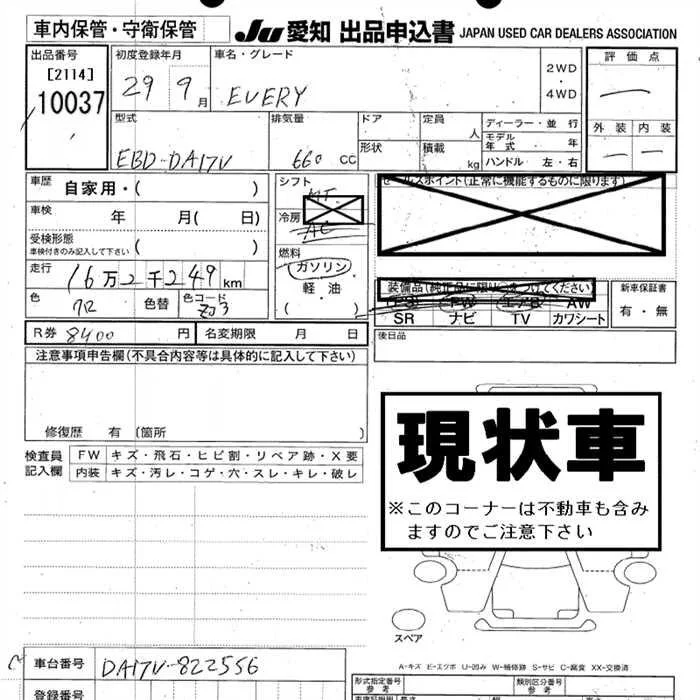 車内保管・守衛保管
JU 愛知 出品申込書 JAPAN USED CAR DEALERS ASSOCIATION
出品番号
[2114]
10037
初度登録年月
29 9月
車名・グレード
EVERY
2WD
・
4WD
評価点
外装 内装
型式
EBD-DA17V
排気量
660 CC
ドア
形状
定員 人
積載 kg
ディーラー・並行
モデル年式 年
ハンドル 左・右
車歴 自家用・( )
車検 年 月(日)
受検形態
車検付きのみ記入して下さい ( )
走行 16万2千249km
色 色替 色コード ZJ3
シフト
MT
冷房
AC
燃料
ガソリン
・
軽油
セールスポイント(正常に機能するものに限ります)
装備品(純正品に限り○をつけてください)
PS PW エアB AW
SR ナビ TV カワシート
新車保証書
有・無
R券 8400円 名変期限 月 日
後日品
注意事項申告欄(不具合内容等は具体的に記入して下さい)
修復歴 有(箇所
検査員記入欄
FW キズ・飛石・ヒビ割・リペア跡・X要
内装 キズ・汚レ・コゲ・穴・スレ・キレ・破レ
現状車
※このコーナーは不動車も含み
ますのでご注意下さい
スペア
A-キズ E-エクボ U-凹み W-補修跡 S-サビ C-腐食 XX-交換済
車台番号 DA17V-822556
登録番号
形式指定番号
参考
類別区分番号
参考